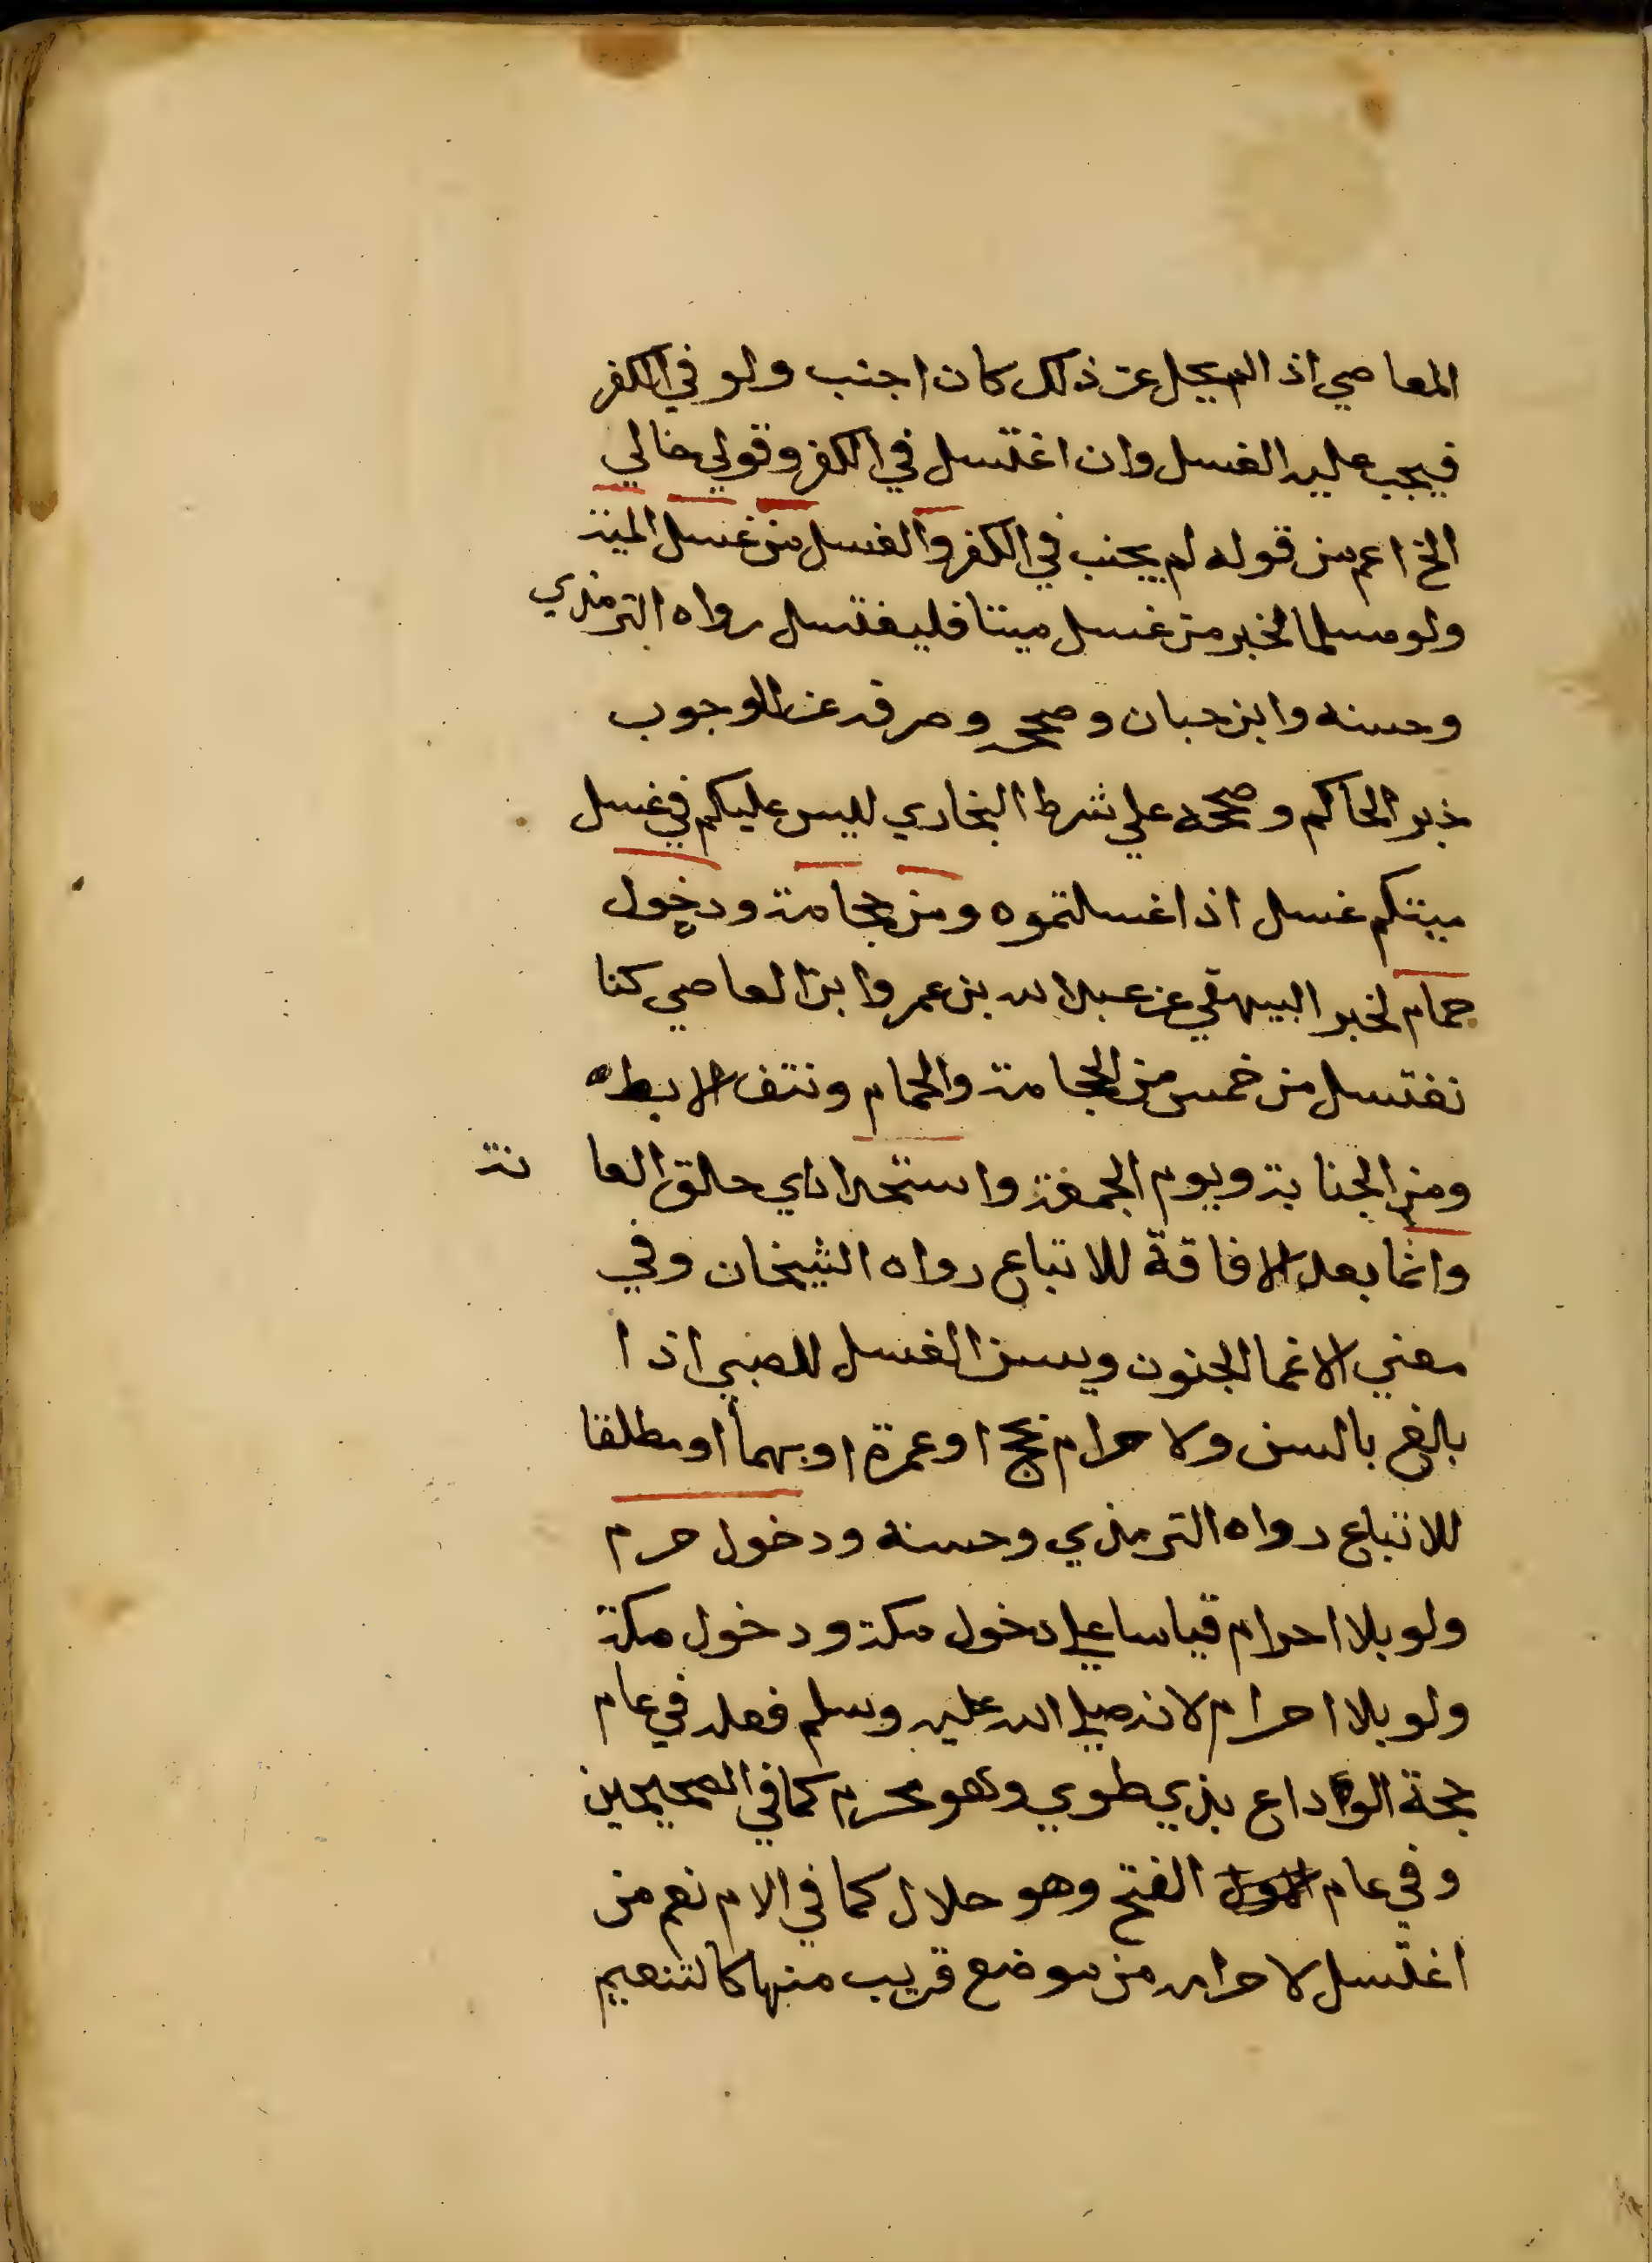 المعاصي اذ الم يحل عن ذلك كان اجنب ولو في الكفر
فيجب عليه الغسل وان اغتسل في الكفر وقولي خالي
الخ اعم من قوله لم يجنب في الكفر والغسل من غسل الميتة
ولو مسلما لخبر من غسل ميتا فليغتسل رواه الترمذي
وحسنه وابن حبان وصححه وصرفه عن الوجوب
خبر الحاكم وصححه علي شرط البخاري ليس عليكم في غسل
ميتكم غسل اذا غسلتموه ومن حجامة ودخول
حمام لخبر البيهقي عن عبد الله بن عمر وابن العاصي كنا
نغتسل من خمس من الحجامة والحمام ونتف الابط
ومن الجنابة ويوم الجمعة واستحداد اي حلق العانة
وانما بعد الافاقة للاتباع رواه الشيخان وفي
معني الاغما الجنون ويسن الغسل للصبي اذا
بالغ بالسن ولاحرام بحج او عمرة او بهما او مطلقا
للاتباع رواه الترمذي وحسنه ودخول حرم
ولو بلا احرام قياسا علي دخول مكة ودخول مكة
ولو بلا احرام لانه صلي الله عليه وسلم فعله في عام
حجة الوداع بذي طوي وهو محرم كما في الصحيحين
وفي عام الفتح وهو حلال كما في الام نعم من
اغتسل لاحرامه من موضع قريب منها كالتنعيم